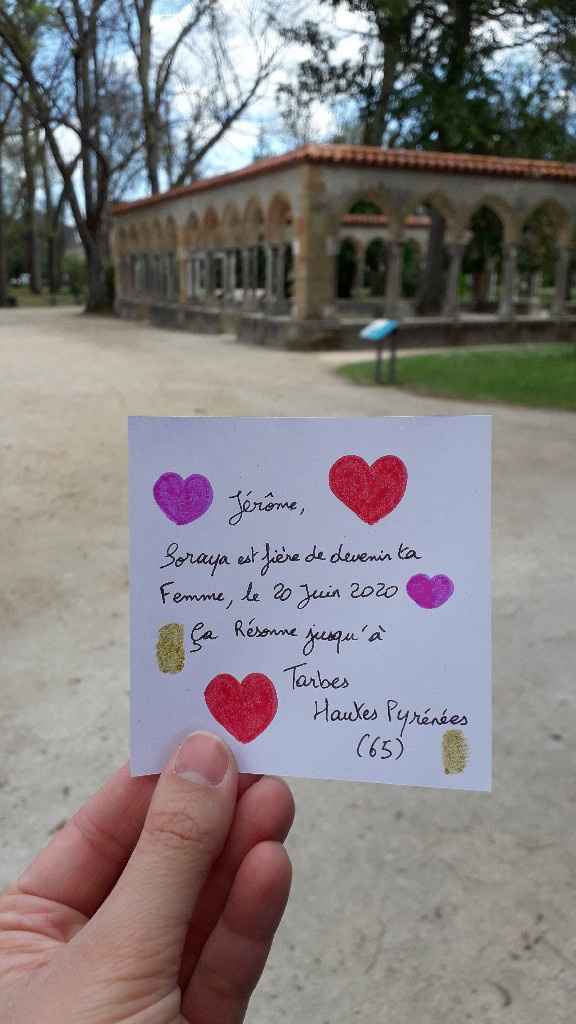 Jérôme,
Soraya est fière de devenir ta
Femme, le 20 Juin 2020
Ça Résonne jusqu'à
Tarbes
Hautes Pyrénées
(65)